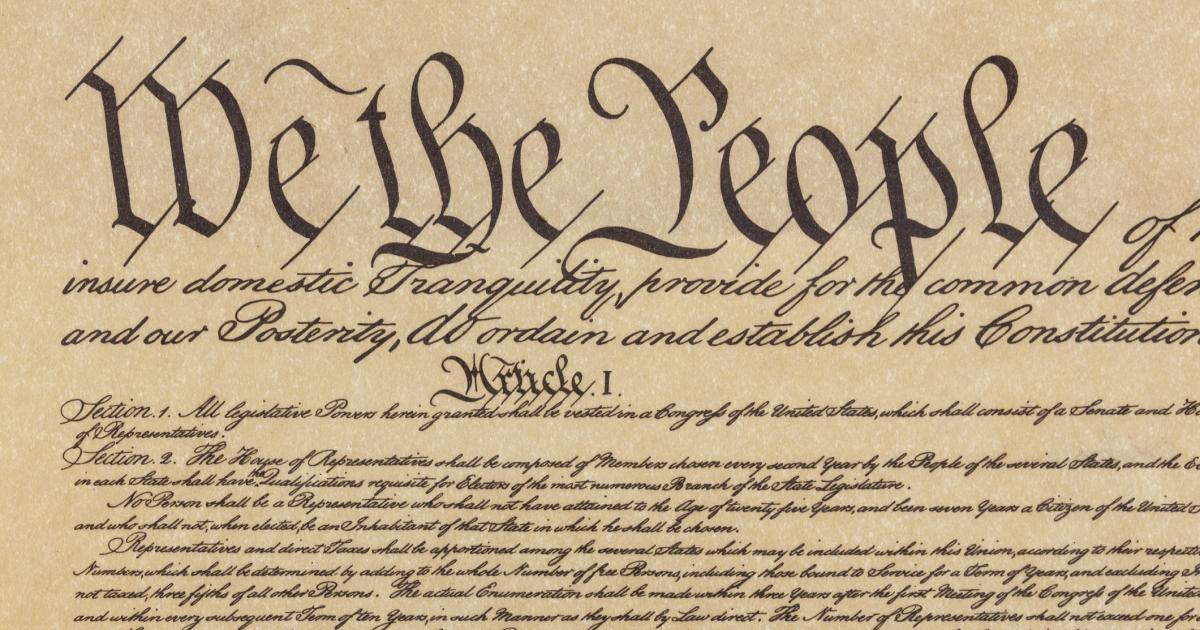 We the People of
insure domestic Tranquility, provide for the common defen
and our Posterity, do ordain and establish this Constitution
Article. I.
Section. 1. All legislative Powers herein granted shall be vested in a Congress of the United States, which shall consist of a Senate and Ho
of Representatives.
Section. 2. The House of Representatives shall be composed of Members chosen every second Year by the People of the several States, and the E
in each State shall have the Qualifications requisite for Electors of the most numerous Branch of the State Legislature.
No Person shall be a Representative who shall not have attained to the Age of twenty five Years, and been seven Years a Citizen of the United S
and who shall not, when elected, be an Inhabitant of that State in which he shall be chosen.
Representatives and direct Taxes shall be apportioned among the several States which may be included within this Union, according to their respecti
Numbers, which shall be determined by adding to the whole Number of free Persons, including those bound to Service for a Term of Years, and excluding
not taxed, three fifths of all other Persons. The actual Enumeration shall be made within three Years after the first Meeting of the Congress of the United
and within every subsequent Term of ten Years, in such Manner as they shall by Law direct. The Number of Representatives shall not exceed one for